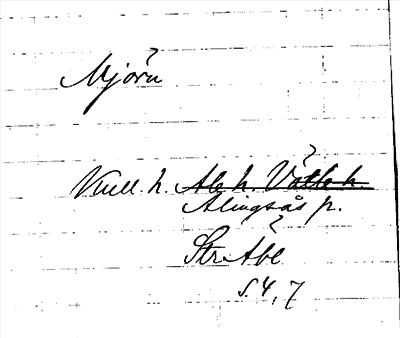 Mjörn
Kull. h. Ale h. Vätle h.
Alingsås p.
StrÄbl
s. 4, 7